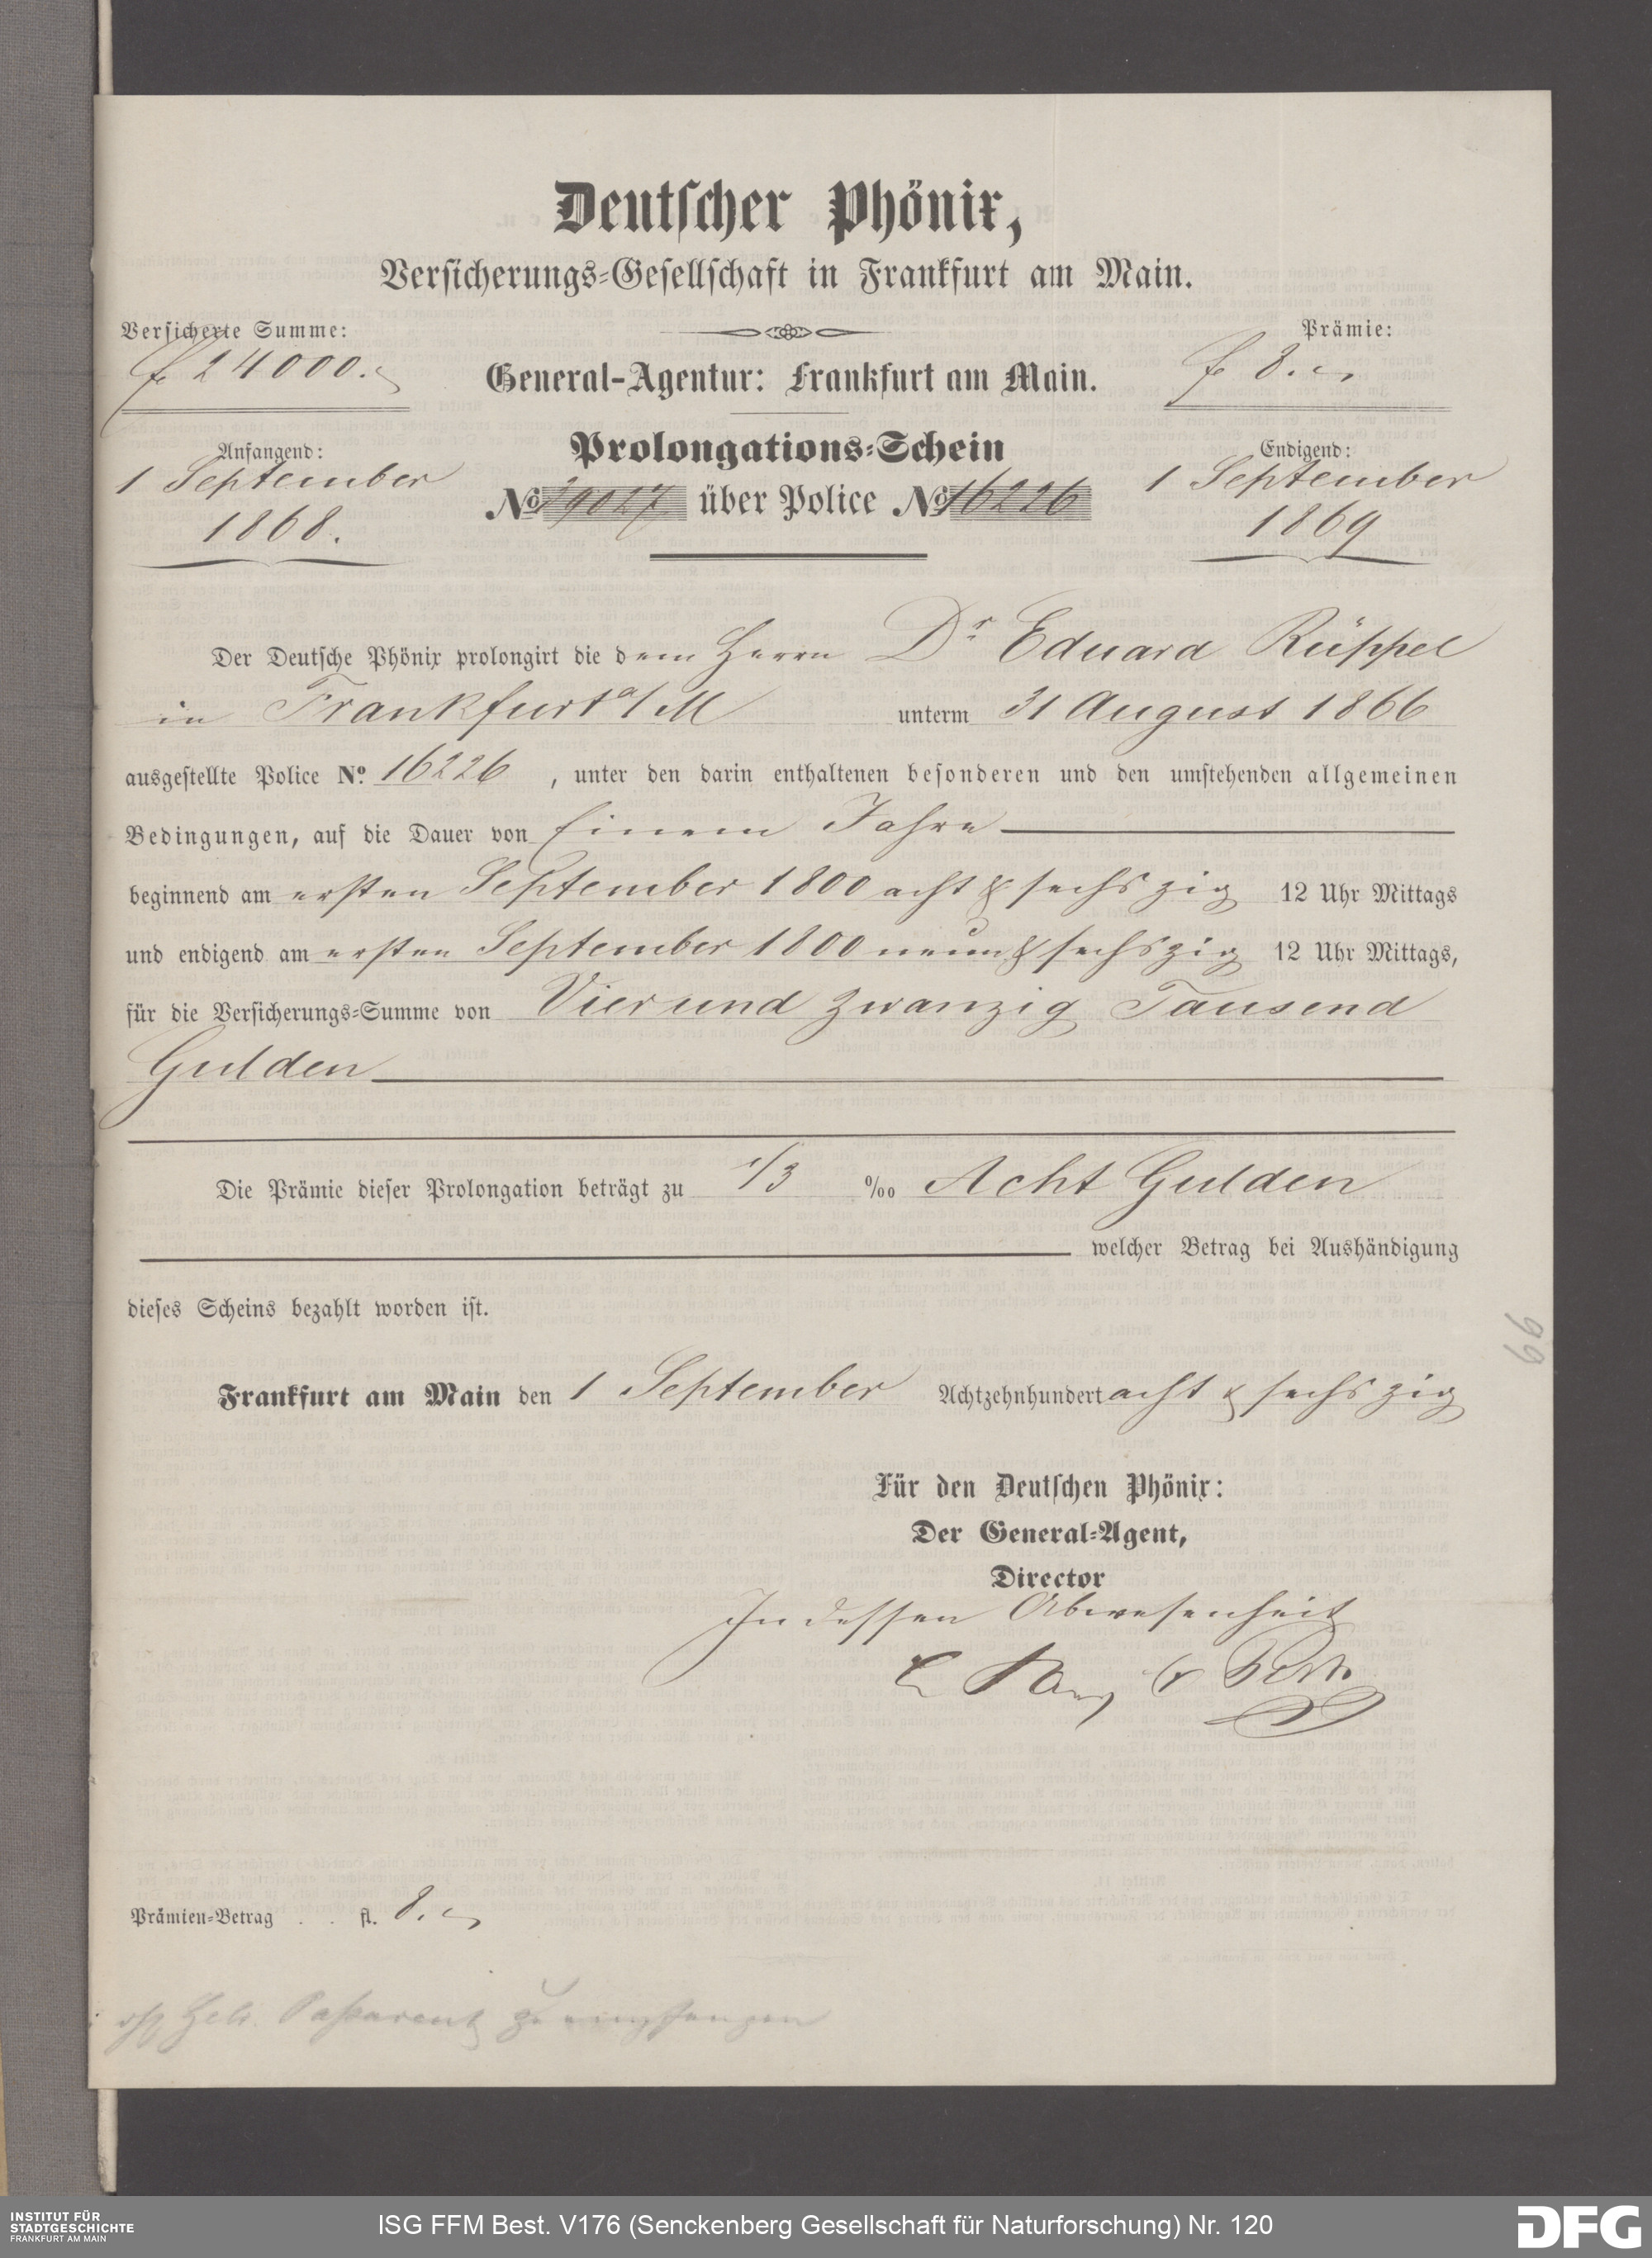 Deutscher Phönix,
Versicherungs-Gesellschaft in Frankfurt am Main.
Versicherte Summe:
f 24000.
Prämie:
f 8.
General-Agentur: Frankfurt am Main.
Anfangend:
1 September
1868.
Prolongations-Schein
No 29027 über Police No 16226
Endigend:
1 September
1869
Der Deutsche Phönix prolongirt die dem Herrn Dr Eduard Rüppel
in Frankfurt a/M unterm 31 August 1866
ausgestellte Police No. 16226, unter den darin enthaltenen besonderen und den umstehenden allgemeinen
Bedingungen, auf die Dauer von Einem Jahre
beginnend am ersten September 1800 acht & sechszig 12 Uhr Mittags
und endigend am ersten September 1800 neun & sechszig 12 Uhr Mittags,
für die Versicherungs-Summe von Vierund zwanzig Tausend
Gulden
Die Prämie dieser Prolongation beträgt zu 1/3 ‰ Acht Gulden
welcher Betrag bei Aushändigung
dieses Scheins bezahlt worden ist.
99
Frankfurt am Main den 1 September Achtzehnhundert acht & sechszig
Für den Deutschen Phönix:
Der General-Agent,
Director
In dessen Abwesenheit
Prämien-Betrag . . fl. 8.
zu empfangen
INSTITUT FÜR
STADTGESCHICHTE
FRANKFURT AM MAIN
ISG FFM Best. V176 (Senckenberg Gesellschaft für Naturforschung) Nr. 120
DFG